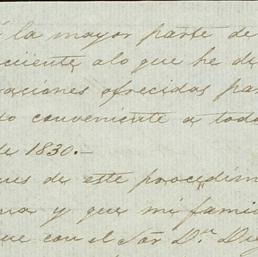 la mayor parte de
cüente, alo que he de
raciones ofrecidas par
do conveniente a todo
de 1830.-
ues de este procedim
ma y que mi famil
que con el Sor Dn Die